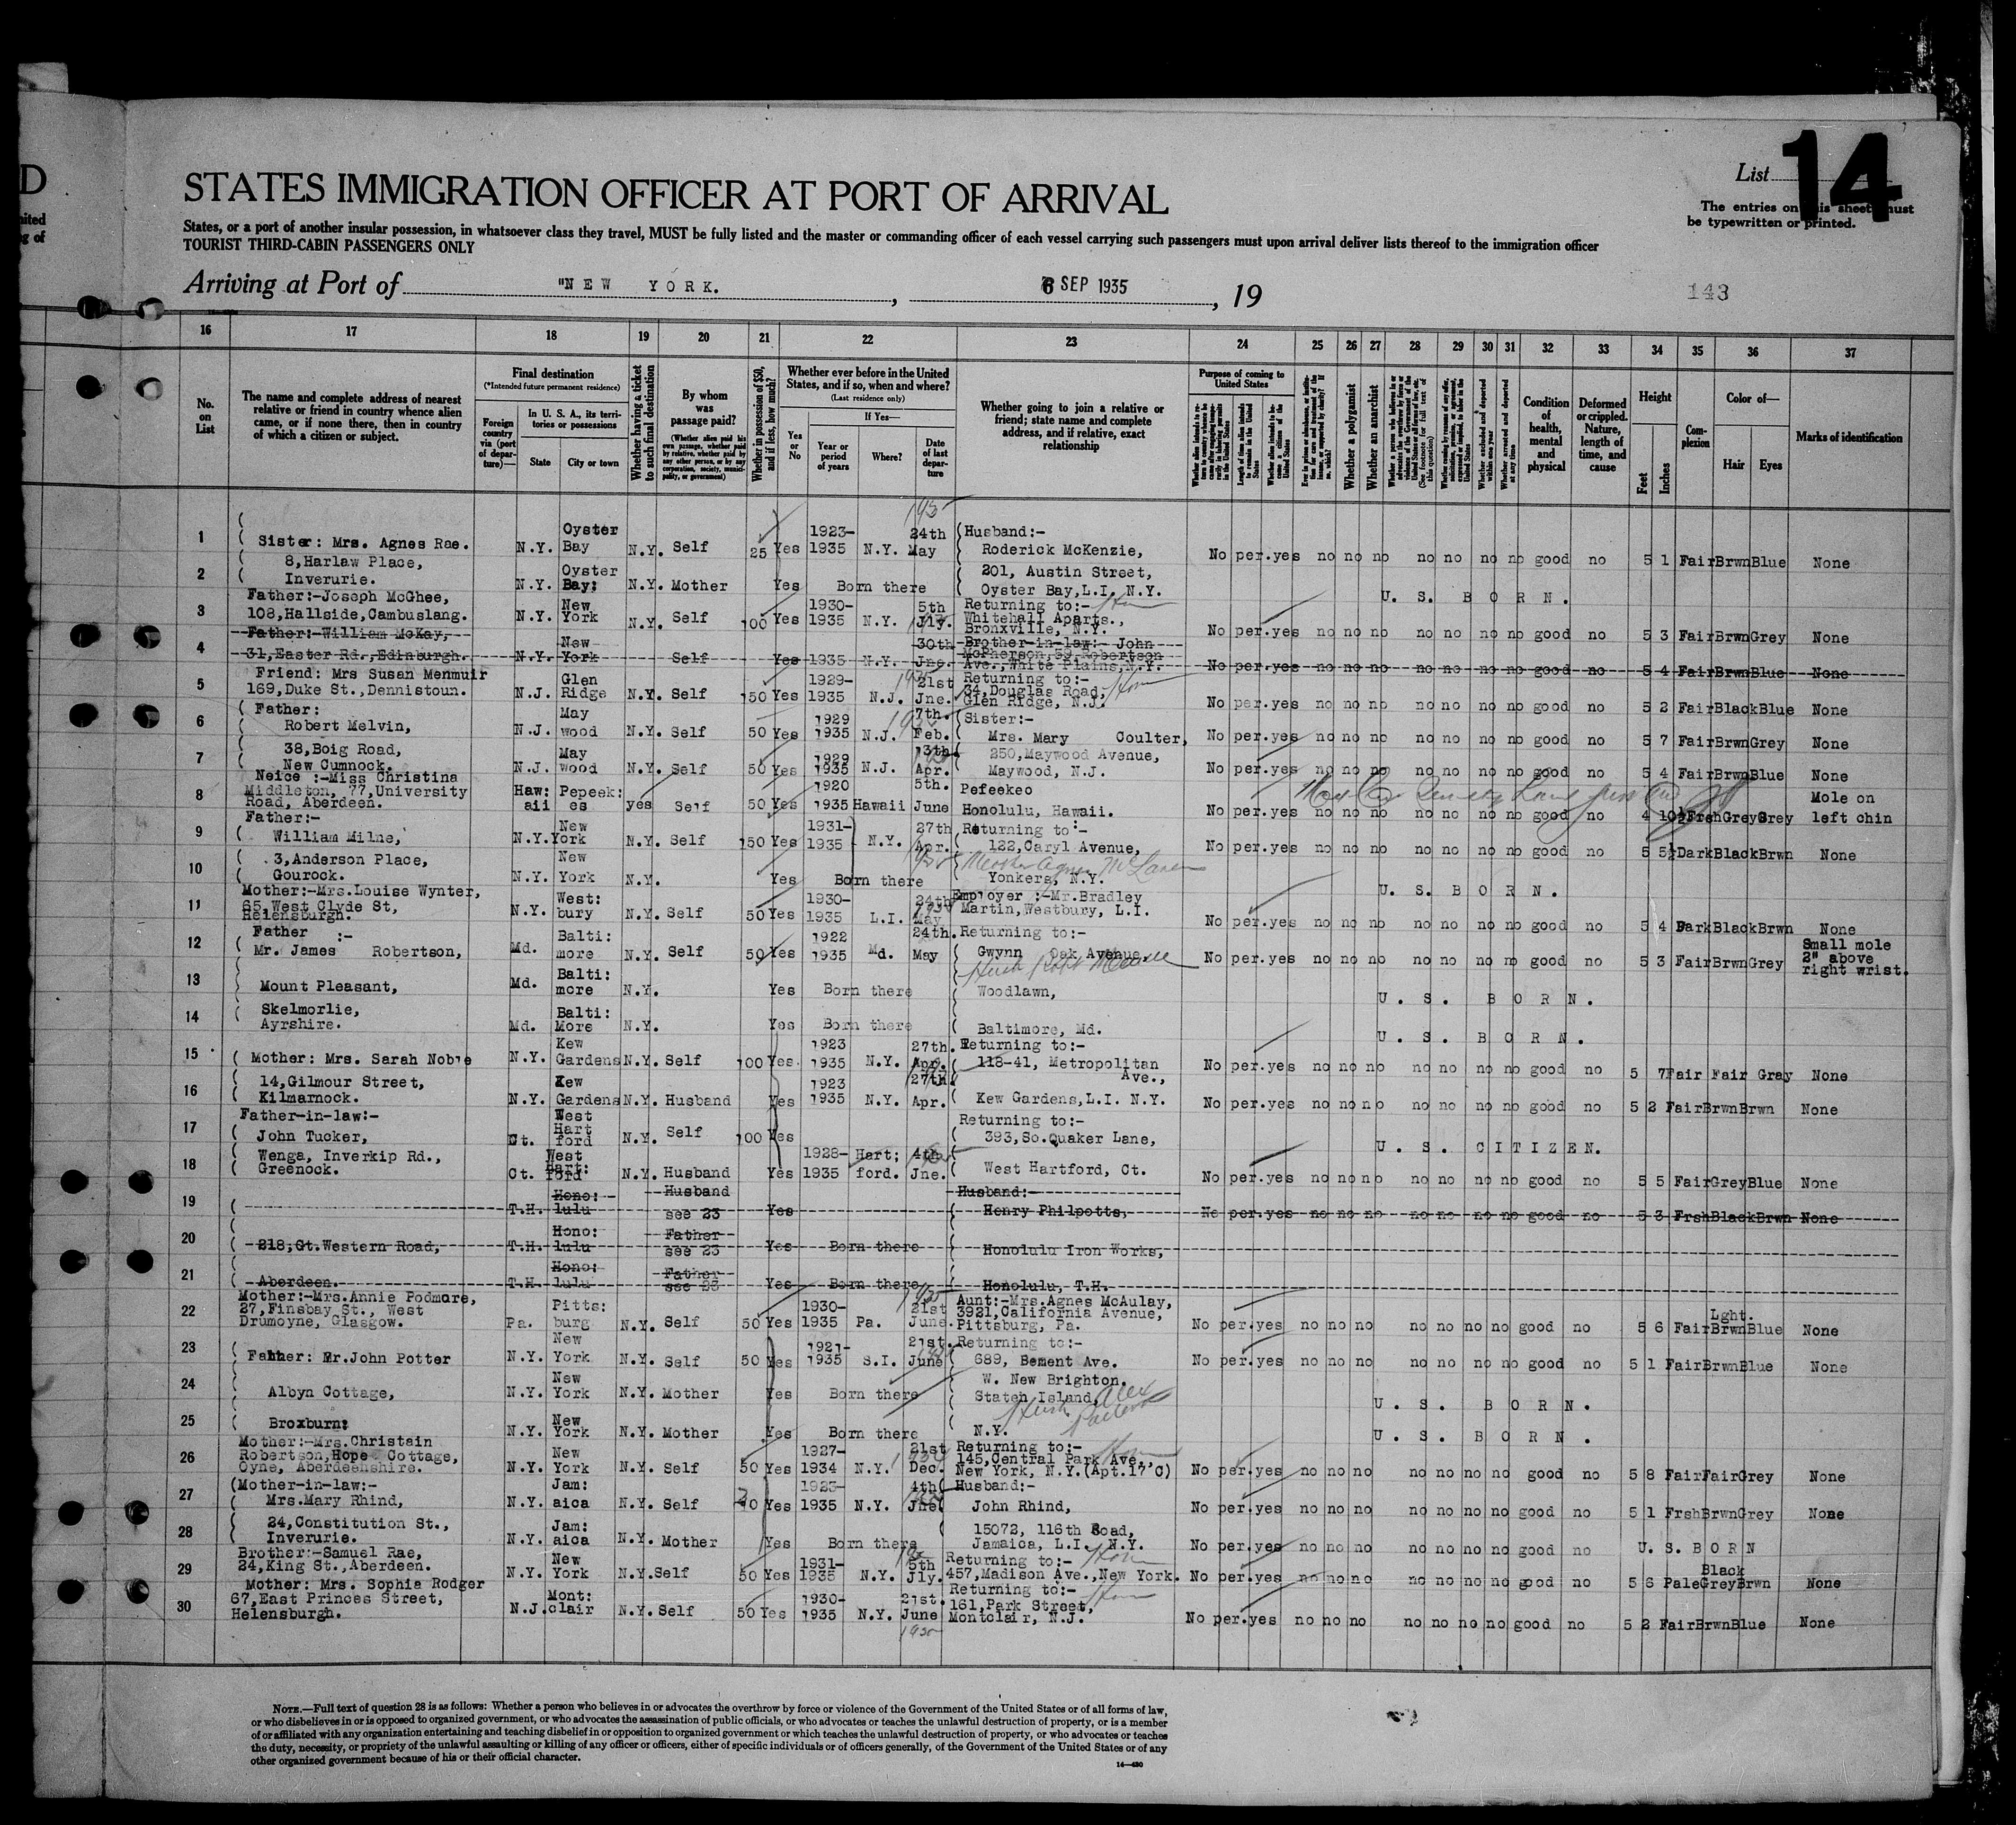 D
nited
g of
List 14
The entries on this sheet must
be typewritten or printed.
STATES IMMIGRATION OFFICER AT PORT OF ARRIVAL
States, or a port of another insular possession, in whatsoever class they travel, MUST be fully listed and the master or commanding officer of each vessel carrying such passengers must upon arrival deliver lists thereof to the immigration officer
TOURIST THIRD-CABIN PASSENGERS ONLY
Arriving at Port of "NEW YORK. , 6 SEP 1935 , 19
143
16 17 18 19 20 21 22 23 24 25 26 27 28 29 30 31 32 33 34 35 36 37
No. on List
The name and complete address of nearest relative or friend in country whence alien came, or if none there, then in country of which a citizen or subject.
Final destination
(*Intended future permanent residence)
Foreign country via (port of departure)—
In U. S. A., its territories or possessions
State
City or town
Whether having a ticket to such final destination
By whom was passage paid?
(Whether alien paid his own passage, whether paid by relative, whether paid by any other person, or by any corporation, society, municipality, or government)
Whether in possession of $50, and if less, how much?
Whether ever before in the United States, and if so, when and where?
(Last residence only)
Yes or No
If Yes—
Year or period of years
Where?
Date of last departure
Whether going to join a relative or friend; state name and complete address, and if relative, exact relationship
Purpose of coming to United States
Length of time alien intends to remain in the United States
Whether alien intends to become a citizen of the United States
Whether a polygamist
Whether an anarchist
Condition of health, mental and physical
Deformed or crippled. Nature, length of time, and cause
Height
Feet
Inches
Complexion
Color of—
Hair
Eyes
Marks of identification
1 Sister: Mrs. Agnes Rae. 8,Harlaw Place, N.Y. Oyster Bay N.Y. Self 25 Yes 1923-1935 N.Y. 24th May Husband:- Roderick McKenzie, No per.yes no no no no no no no good no 5 1 Fair Brwn Blue None
2 Inverurie. N.Y. Oyster Bay: N.Y. Mother Yes Born there 201, Austin Street, Oyster Bay,L.I. N.Y. U. S. BORN.
3 Father:-Joseph McGhee, 108,Hallside,Cambuslang. N.Y. New York N.Y. Self 100 Yes 1930-1935 N.Y. 5th Jly. Returning to:- Whitehall Aparts., Bronxville, N.Y. No per.yes no no no no no no no good no 5 3 Fair Brwn Grey None
4 Father:-William McKay, 31,Easter Rd.,Edinburgh. N.Y. New York Self Yes 1935 N.Y. 30th Jne. Brother-in-law:- John McPherson,39 Robertson Ave.,White Plains,N.Y. No per.yes no no no no no no no good no 5 4 Fair Brwn Blue None
5 Friend: Mrs Susan Menmuir 169,Duke St.,Dennistoun. N.J. Glen Ridge N.Y. Self 150 Yes 1929-1935 N.J. 21st Jne. Returning to:- 34,Douglas Road, Glen Ridge, N.J. No per.yes no no no no no no no good no 5 2 Fair Black Blue None
6 Father: Robert Melvin, N.J. May wood N.Y. Self 50 Yes 1929 1935 N.J. 7th. Feb. Sister:- Mrs. Mary Coulter, No per.yes no no no no no no no good no 5 7 Fair Brwn Grey None
7 38,Boig Road, New Cumnock. N.J. May wood N.Y. Self 50 Yes 1929 1935 N.J. 13th Apr. 250,Maywood Avenue, Maywood, N.J. No per.yes no no no no no no no good no 5 4 Fair Brwn Blue None
8 Neice :-Miss Christina Middleton, 77,University Road, Aberdeen. Haw: aii Pepeek: es yes Self 50 Yes 1920 1935 Hawaii 5th. June Pefeekeo Honolulu, Hawaii. No per.yes no no no no no no no good no 4 10½ Frsh Grey Grey Mole on left chin
9 Father:- William Milne, N.Y. New York N.Y. Self 150 Yes 1931-1935 N.Y. 27th Apr. Returning to :- 122,Caryl Avenue, No per.yes no no no no no no no good no 5 5½ Dark Black Brwn None
10 3,Anderson Place, Gourock. N.Y. New York N.Y. Yes Born there Mother Agnes McLaren Yonkers, N.Y. U. S. BORN.
11 Mother:-Mrs.Louise Wynter, 65,West Clyde St, Helensburgh. N.Y. West: bury N.Y. Self 50 Yes 1930-1935 L.I. 24th May Employer :-Mr.Bradley Martin,Westbury, L.I. No per.yes no no no no no no no good no 5 4 Dark Black Brwn None
12 Father :- Mr. James Robertson, Md. Balti: more N.Y. Self 50 Yes 1922 1935 Md. 24th. May Returning to:- Gwynn Oak Avenue, No per.yes no no no no no no no good no 5 3 Fair Brwn Grey Small mole 2" above right wrist.
13 Mount Pleasant, Md. Balti: more N.Y. Yes Born there Woodlawn, U. S. BORN.
14 Skelmorlie, Ayrshire. Md. Balti: More N.Y. Yes Born there Baltimore, Md. U. S. BORN.
15 Mother: Mrs. Sarah Noble N.Y. Kew Gardens N.Y. Self 100 Yes. 1923 1935 N.Y. 27th. Apr. Returning to:- 118-41, Metropolitan Ave., No per.yes no no no no no no no good no 5 7 Fair Fair Gray None
16 14,Gilmour Street, Kilmarnock. N.Y. Kew Gardens N.Y. Husband Yes 1923 1935 N.Y. 27th Apr. Kew Gardens,L.I. N.Y. No per.yes no no no no no no no good no 5 2 Fair Brwn Brwn None
17 Father-in-law:- John Tucker, Ct. West Hart ford N.Y. Self 100 Yes Returning to:- 393,So.Quaker Lane, U. S. CITIZEN.
18 Wenga, Inverkip Rd., Greenock. Ct. West Hart: ford N.Y. Husband Yes 1928-1935 Hart; ford. 4th Jne. West Hartford, Ct. No per.yes no no no no no no no good no 5 5 Fair Grey Blue None
19 T.H. Hono: lulu Husband see 23 Yes Husband:- Henry Philpotts, No per.yes no no no no no no no good no 5 3 Frsh Black Brwn None
20 218,Gt.Western Road, T.H. Hono: lulu Father see 23 Yes Born there Honolulu Iron Works,
21 Aberdeen. T.H. Hono: lulu Father see 23 Yes Born there Honolulu, T.H.
22 Mother:-Mrs.Annie Podmore, 27,Finsbay St., West Drumoyne, Glasgow. Pa. Pitts: burg N.Y. Self 50 Yes 1930-1935 Pa. 21st June. Aunt:-Mrs.Agnes McAulay, 3921,California Avenue, Pittsburg, Pa. No per.yes no no no no no no no good no 5 6 Fair Lght. Brwn Blue None
23 Father: Mr.John Potter N.Y. New York N.Y. Self 50 Yes 1921-1935 S.I. 21st. June Returning to:- 689, Bement Ave. No per.yes no no no no no no no good no 5 1 Fair Brwn Blue None
24 Albyn Cottage, N.Y. New York N.Y. Mother Yes Born there W. New Brighton. Staten Island, U. S. BORN.
25 Broxburn: N.Y. New York N.Y. Mother Yes Born there N.Y. U. S. BORN.
26 Mother:-Mrs.Christain Robertson,Hope Cottage, Oyne, Aberdeenshire. N.Y. New York N.Y. Self 50 Yes 1927-1934 N.Y. 21st Dec. Returning to:- 145,Central Park Ave., New York, N.Y.(Apt.17 C) No per.yes no no no no no no no good no 5 8 Fair Fair Grey None
27 (Mother-in-law:- Mrs.Mary Rhind, N.Y. Jam: aica N.Y. Self Yes 1923-1935 N.Y. 4th Jne Husband:- John Rhind, No per.yes no no no no no no no good no 5 1 Frsh Brwn Grey None
28 24,Constitution St., Inverurie. N.Y. Jam: aica N.Y. Mother Yes Born there 15072, 116th Road, Jamaica, L.I. N.Y. No per.yes no no no no no no no good no U. S. BORN
29 Brother:-Samuel Rae, 24,King St.,Aberdeen. N.Y. New York N.Y. Self 50 Yes 1931-1935 N.Y. 5th Jly. Returning to:- 457,Madison Ave.,New York. No per.yes no no no no no no no good no 5 6 Pale Black Grey Brwn None
30 Mother: Mrs. Sophia Rodger 67,East Princes Street, Helensburgh. N.J. Mont: clair N.Y. Self 50 Yes 1930-1935 N.Y. 21st. June Returning to:- 161,Park Street, Montclair, N.J. No per.yes no no no no no no no good no 5 2 Fair Brwn Blue None
NOTE.—Full text of question 28 is as follows: Whether a person who believes in or advocates the overthrow by force or violence of the Government of the United States or of all forms of law,
or who disbelieves in or is opposed to organized government, or who advocates the assassination of public officials, or who advocates or teaches the unlawful destruction of property, or is a member
of or affiliated with any organization entertaining and teaching disbelief in or opposition to organized government or which teaches the unlawful destruction of property, or who advocates or teaches
the duty, necessity, or propriety of the unlawful assaulting or killing of any officer or officers, either of specific individuals or of officers generally, of the Government of the United States or of any
other organized government because of his or their official character.
14—430